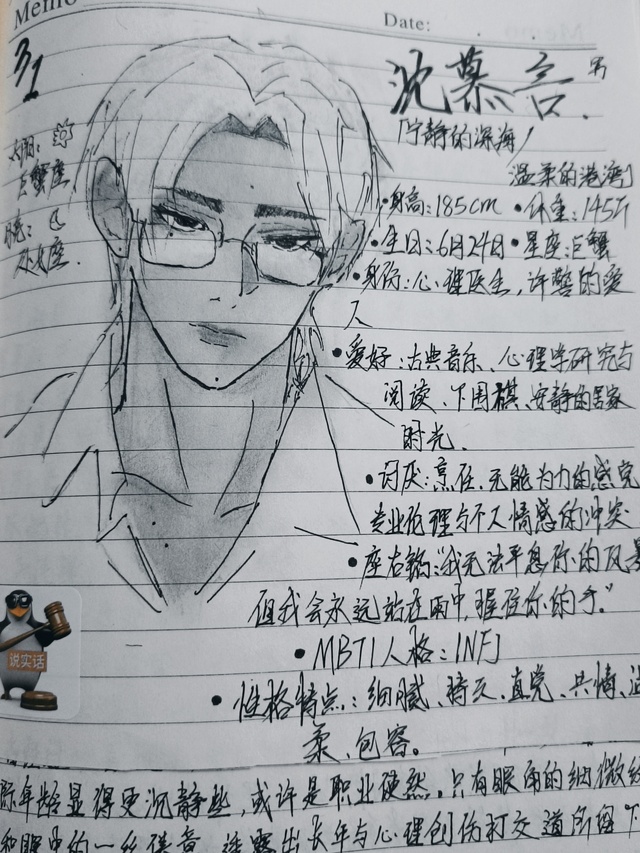 Memo
Date:
31
沈慕言 男
「宁静的深海/
温柔的港湾」
太阳:
巨蟹座
月亮:
处女座.
•身高:185cm •体重:145斤
•生日:6月24日•星座:巨蟹
•身份:心理医生,许警的爱
人
•爱好:古典音乐、心理学研究与
阅读、下围棋、安静的居家
时光.
•讨厌:烹饪、无能为力的感觉
专业伦理与个人情感的冲突
•座右铭:“我无法平息你的风暴
但我会永远站在雨中,握住你的手.”
•MBTI人格:INFJ
•性格特点:细腻、持久、直觉、共情、温
柔、包容。
说实话
际年龄显得更沉静些,或许是职业使然,只有眼角的细微纹
和眼中的一丝疲惫,透露出长年与心理创伤打交道所留下